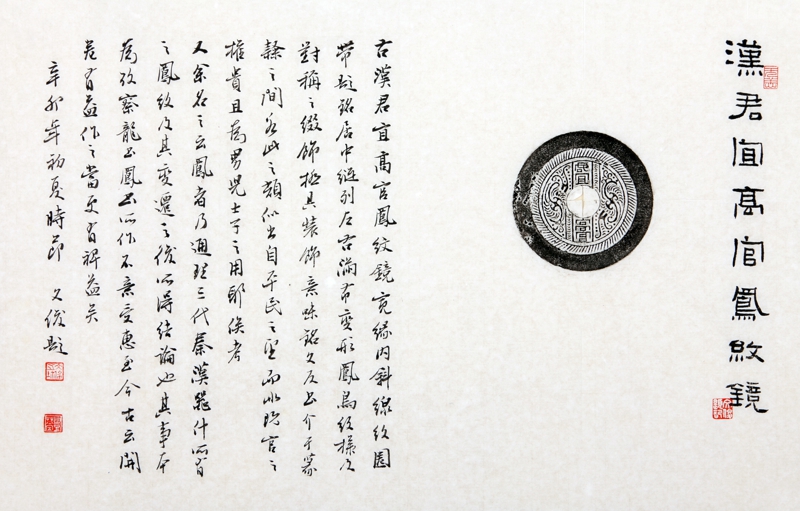 漢君宜高官鳳紋鏡
右漢君宜高官鳳紋鏡寬緣内斜線紋圈
帶題銘居中縱列左右滿布變形鳳鳥紋樣及
對稱之綴飾極具裝飾意味銘文反書介于篆
隸之間此之類似出自平民之而此官之
權貴且為男兒士子之用耶俟考
人余名之云鳳者乃通三代秦漢器什所有
之鳳紋及其變遷之後所得結論也其事本
為攷察龍書鳳書所作不意受惠至今古云開
卷有益作之當更有裨益矣
辛卯年初夏時節 文俊題